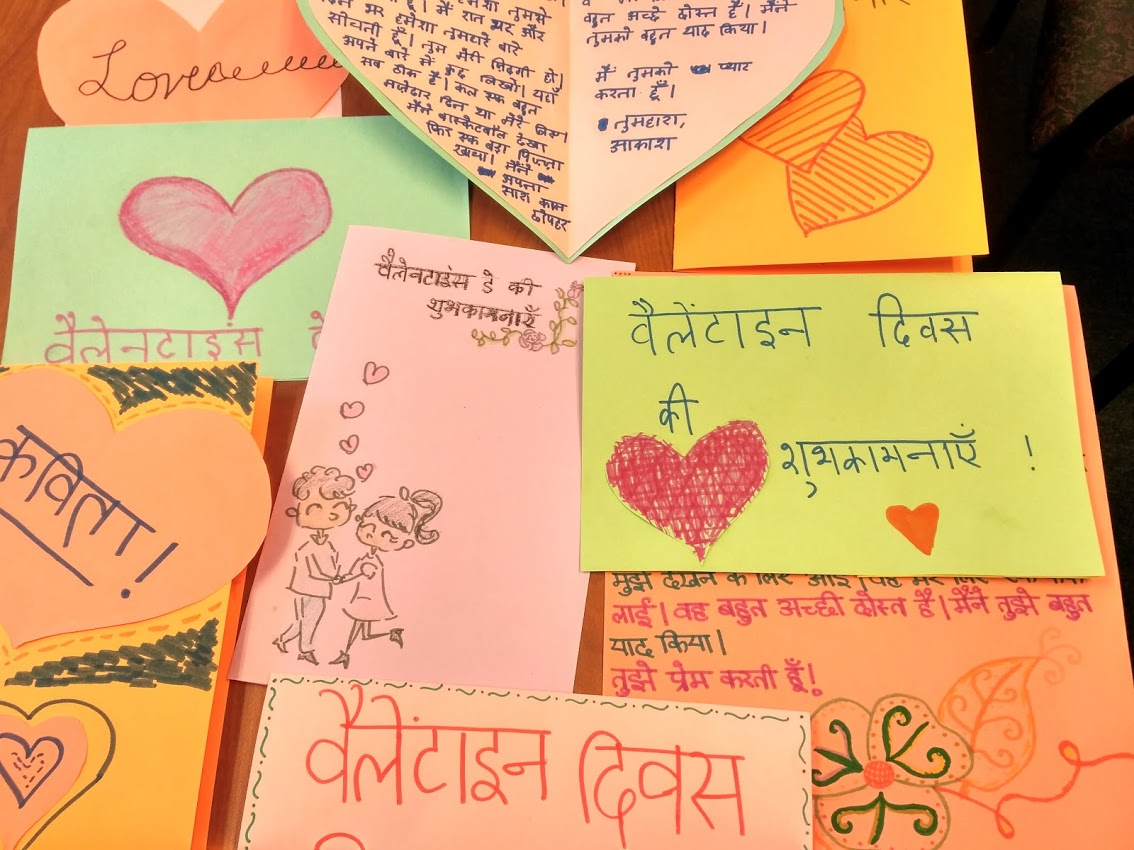 Love
भर हमेशा तुमसे
सोचती हूँ। तुम मेरी ज़िंदगी हो।
अपने बारे में कुछ लिखो। यहाँ
सब ठीक है। कल एक बहुत
मज़ेदार दिन था मेरे लिए।
मैंने बास्केटबॉल देखा
फिर एक बड़ा पिज़्ज़ा
खाया। मैंने
अपना
सारा काम
दोपहर
बहुत अच्छे दोस्त हैं। मैंने
तुमको बहुत याद किया।
मैं तुमको प्यार
करता हूँ।
तुम्हारा,
आकाश
वैलेनटाइंस
वैलेनटाइंस डे की
शुभकामनाएँ
वैलेंटाइन दिवस
की
शुभकामनाएँ !
कविता!
मुझे देखने के लिए आई।
लाई। वह बहुत अच्छी दोस्त है। मैंने तुझे बहुत
याद किया।
तुझे प्रेम करती हूँ!
वैलेंटाइन दिवस